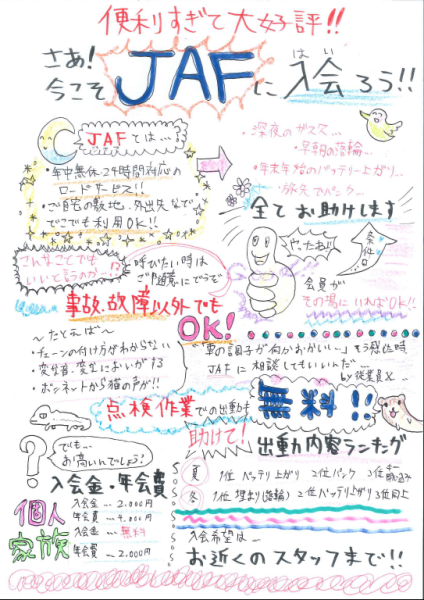 便利すぎて大好評!!
さあ!
今こそJAFに入会ろう!!
はい
JAFとは…
・年中無休24時間対応の
ロードサービス!!
・ご自宅の敷地、外出先など
どこでも利用OK!!
・深夜のガス欠…
・早朝の落輪…
・年末年始のバッテリー上がり…
・旅先でパンク…
全てお助けします
こんなことでも
いいと言うのか…!?
呼びたい時は
ご遠慮にどうぞ
やったね!!
条件は
会員が
その場にいればOK!!
事故、故障以外でも
OK!
～たとえば～
・チェーンの付け方がわからない
・変な音、変なにおいがする
・ボンネットから猫の声が!!
「車の調子が何かおかしい…」そう感じた時
JAFに相談してもいいんだ
by従業員X
点検作業での出動も
無料!!
でも…
お高いんでしょう!
助けて!
出動内容ランキング
入会金・年会費
個人
入会金…2,000円
年会費…4,000円
家族
入会金…無料
年会費…2,000円
夏
1位 バッテリ上がり 2位パンク 3位キー閉じ込み
冬
1位 埋まり(落輪) 2位バッテリ上がり 3位同上
入会希望は…
お近くのスタッフまで!!